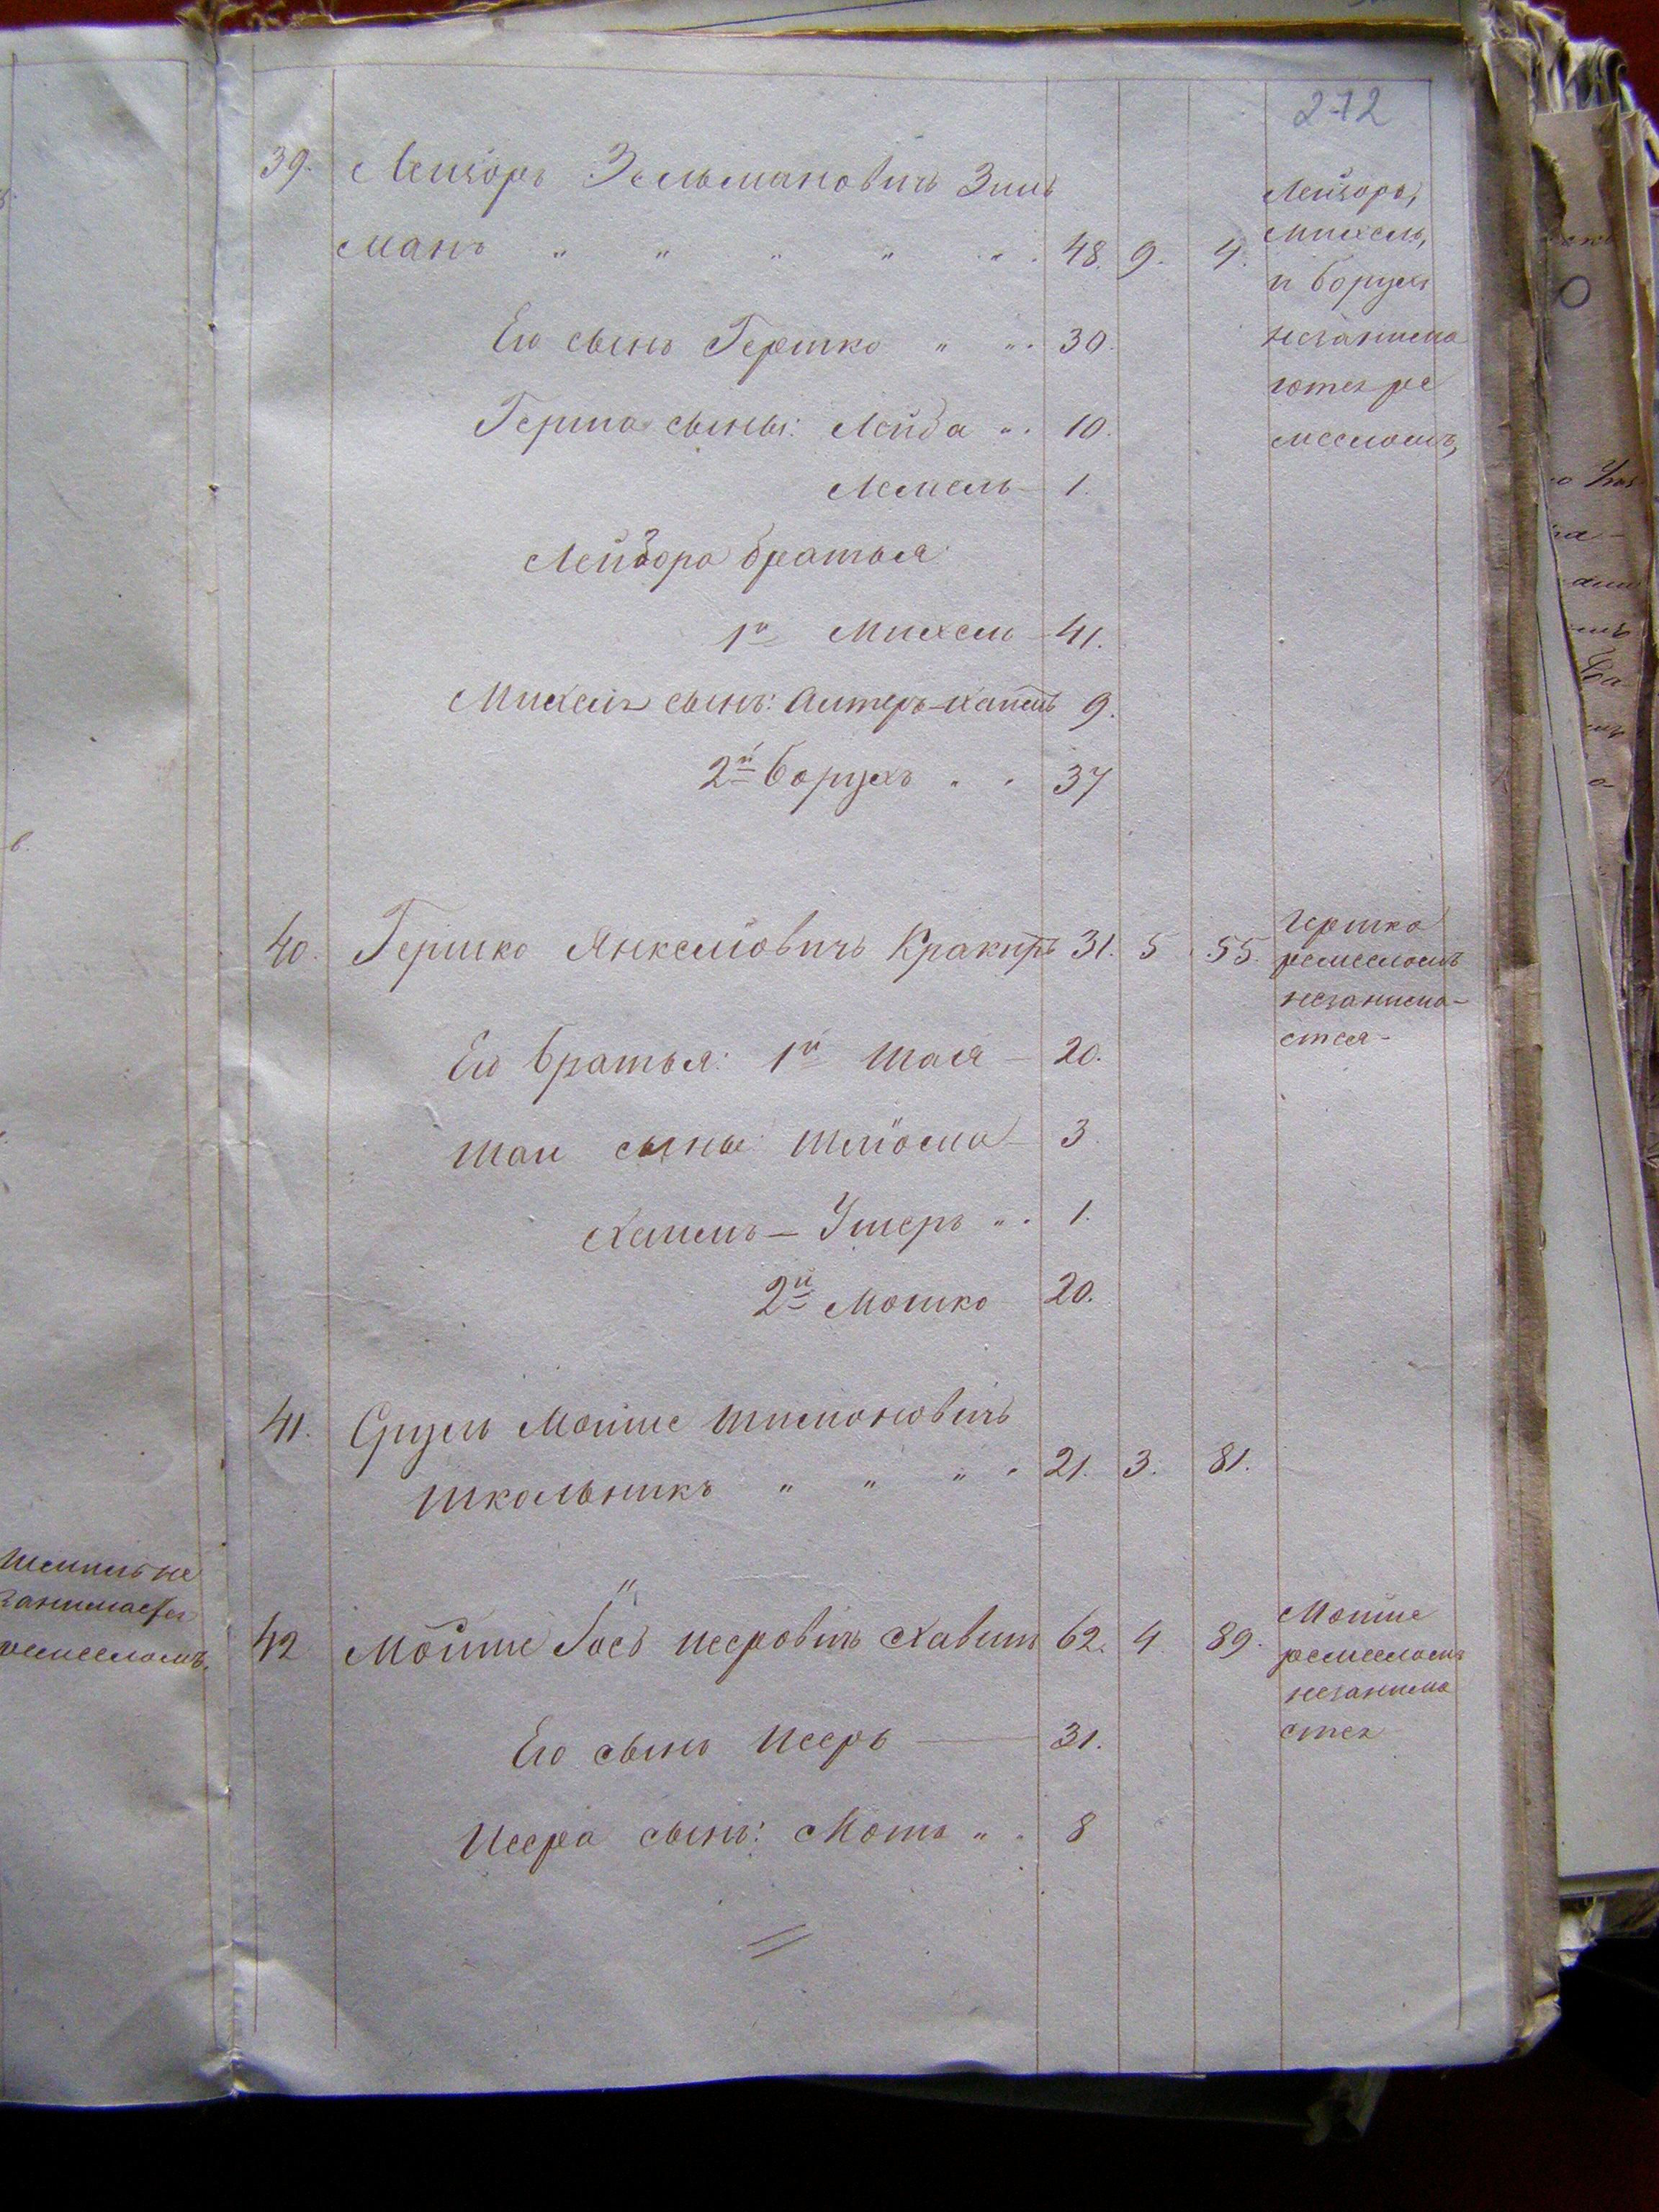 272
39. Лейзоръ Зельмановичъ Зиль
манъ " " " " " . 48. 9. 4.
Лейзоръ,
Михель,
и Борухъ
незанима
ются ре
месломъ,
Его сынъ Гершко " " . 30.
Герша сыны: Лейба " . 10.
Лемель 1.
Лейзора братья
1й Михель 41.
Михеля сынъ: Алтеръ-Хаимъ 9.
2й Борухъ " " 37
40. Гершко Янкелевичъ Кракиръ 31. 5. 55.
Гершко
ремесломъ
незанима-
ется-
Его братья: 1й Шая — 20.
Шаи сыны: Шлёома 3
Хаимъ — Ушеръ " . 1.
2й Мошко 20.
41. Сруль Мойше Шимоновичъ
Школьникъ " " " " 21. 3. 81.
42 Мойше Іосъ Исеровичъ Хавит 62. 4. 89.
Мойше
ремесломъ
незанима
ется
Его сынъ Исеръ — 31.
Исера сынъ: Моть " . 8
не
занимается
ремесломъ.